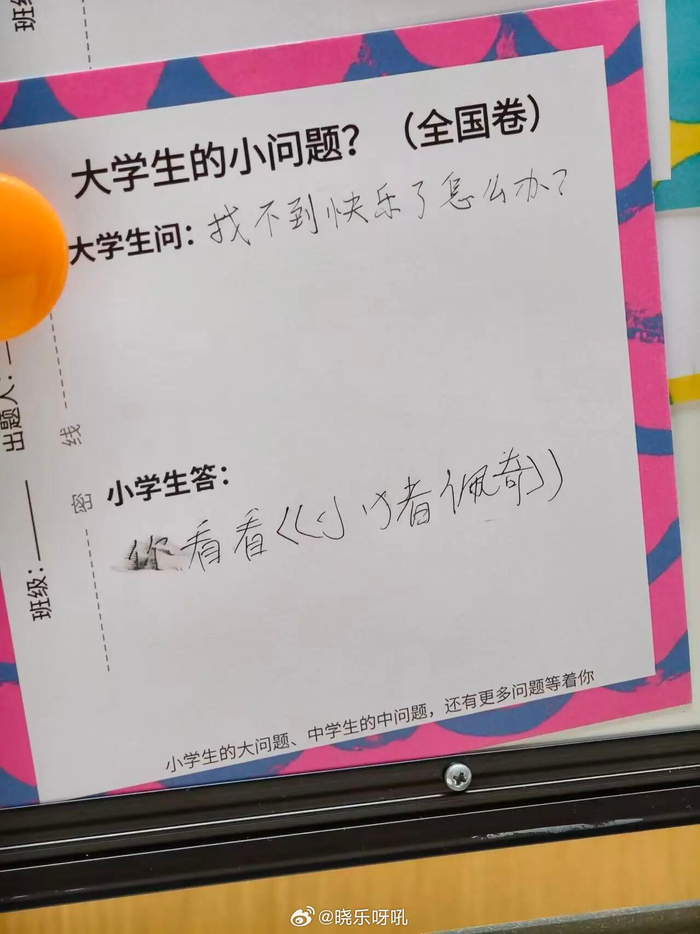 大学生的小问题？（全国卷）
大学生问：找不到快乐了怎么办？
小学生答：
你看看《小猪佩奇》
小学生的大问题、中学生的中问题，还有更多问题等着你
出题人：
线
密
班级：
班级
@晓乐呀吼